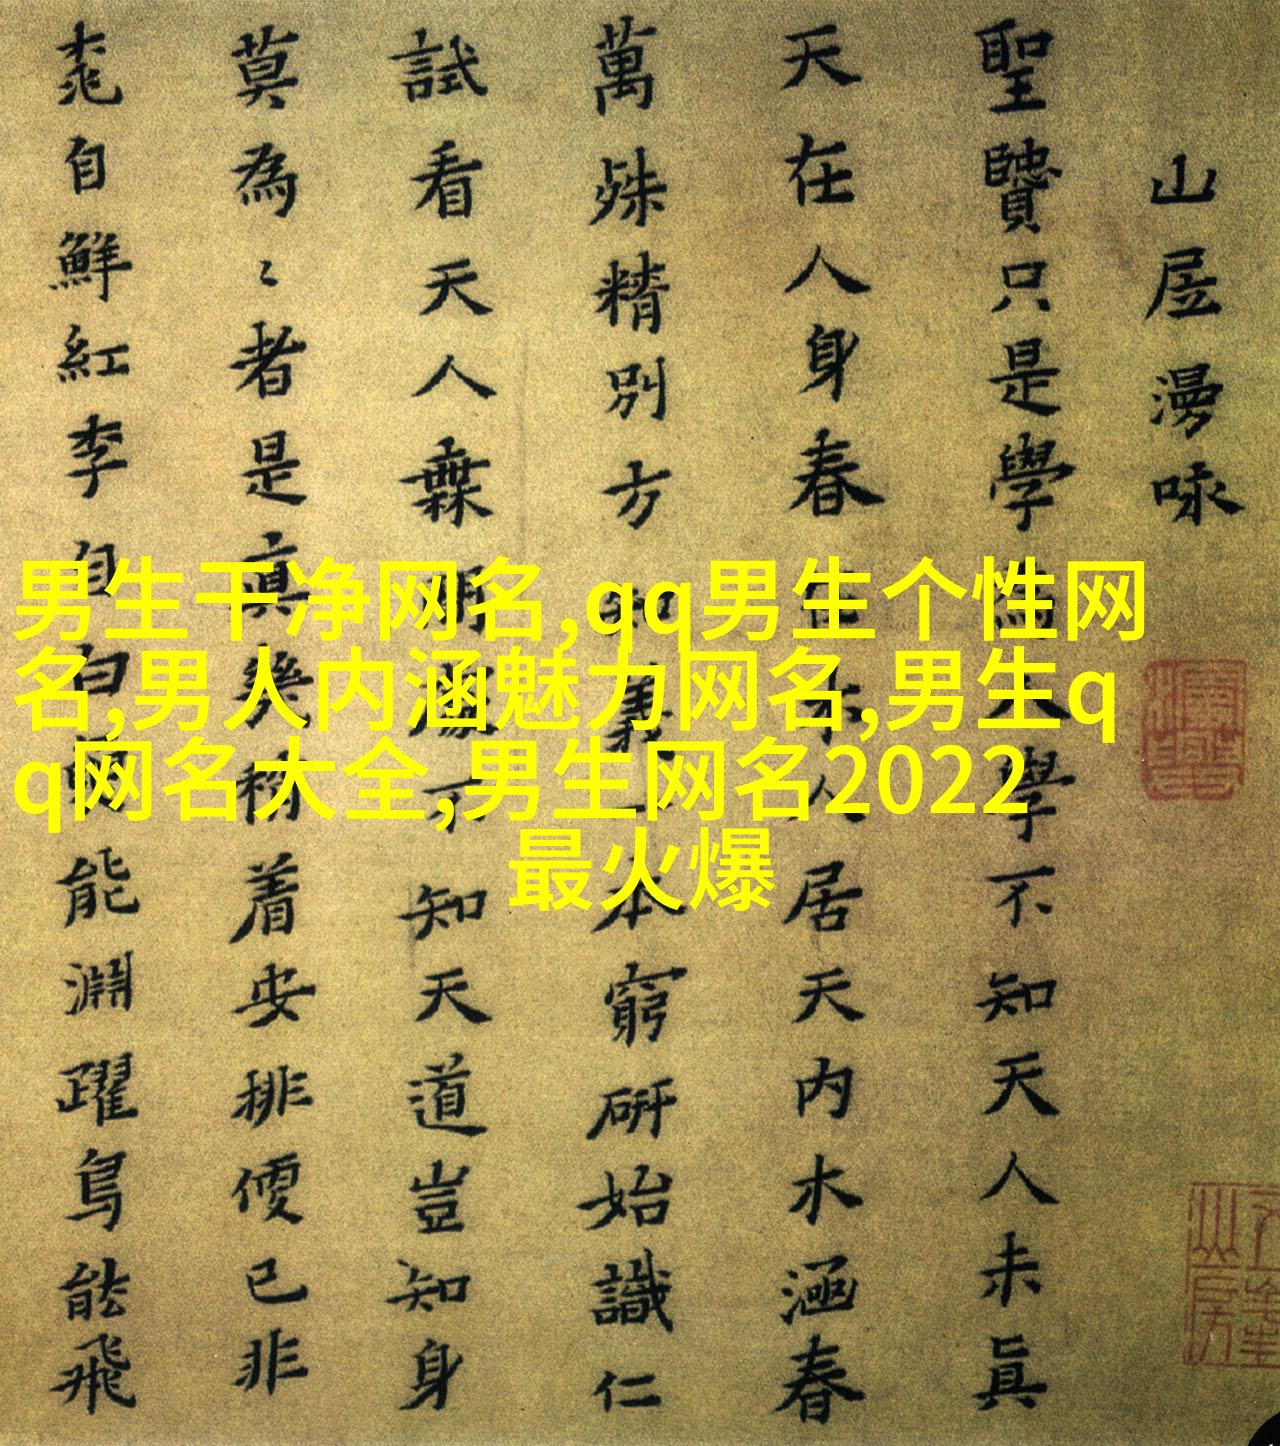 山居漫咏
聖賢只是學為人學不知天人未眞
天在人身春在木人居天内木涵春
萬殊精別方知義一本窮研始識仁
試看天人橆不知天道豈知身
莫為〻者是眞幾稍着安排便已非
桃自鮮紅李自白能淵躍鳥能飛
男生干净网名,qq男生个性网
名,男人内涵魅力网名,男生q
q网名大全,男生网名2022
最火爆